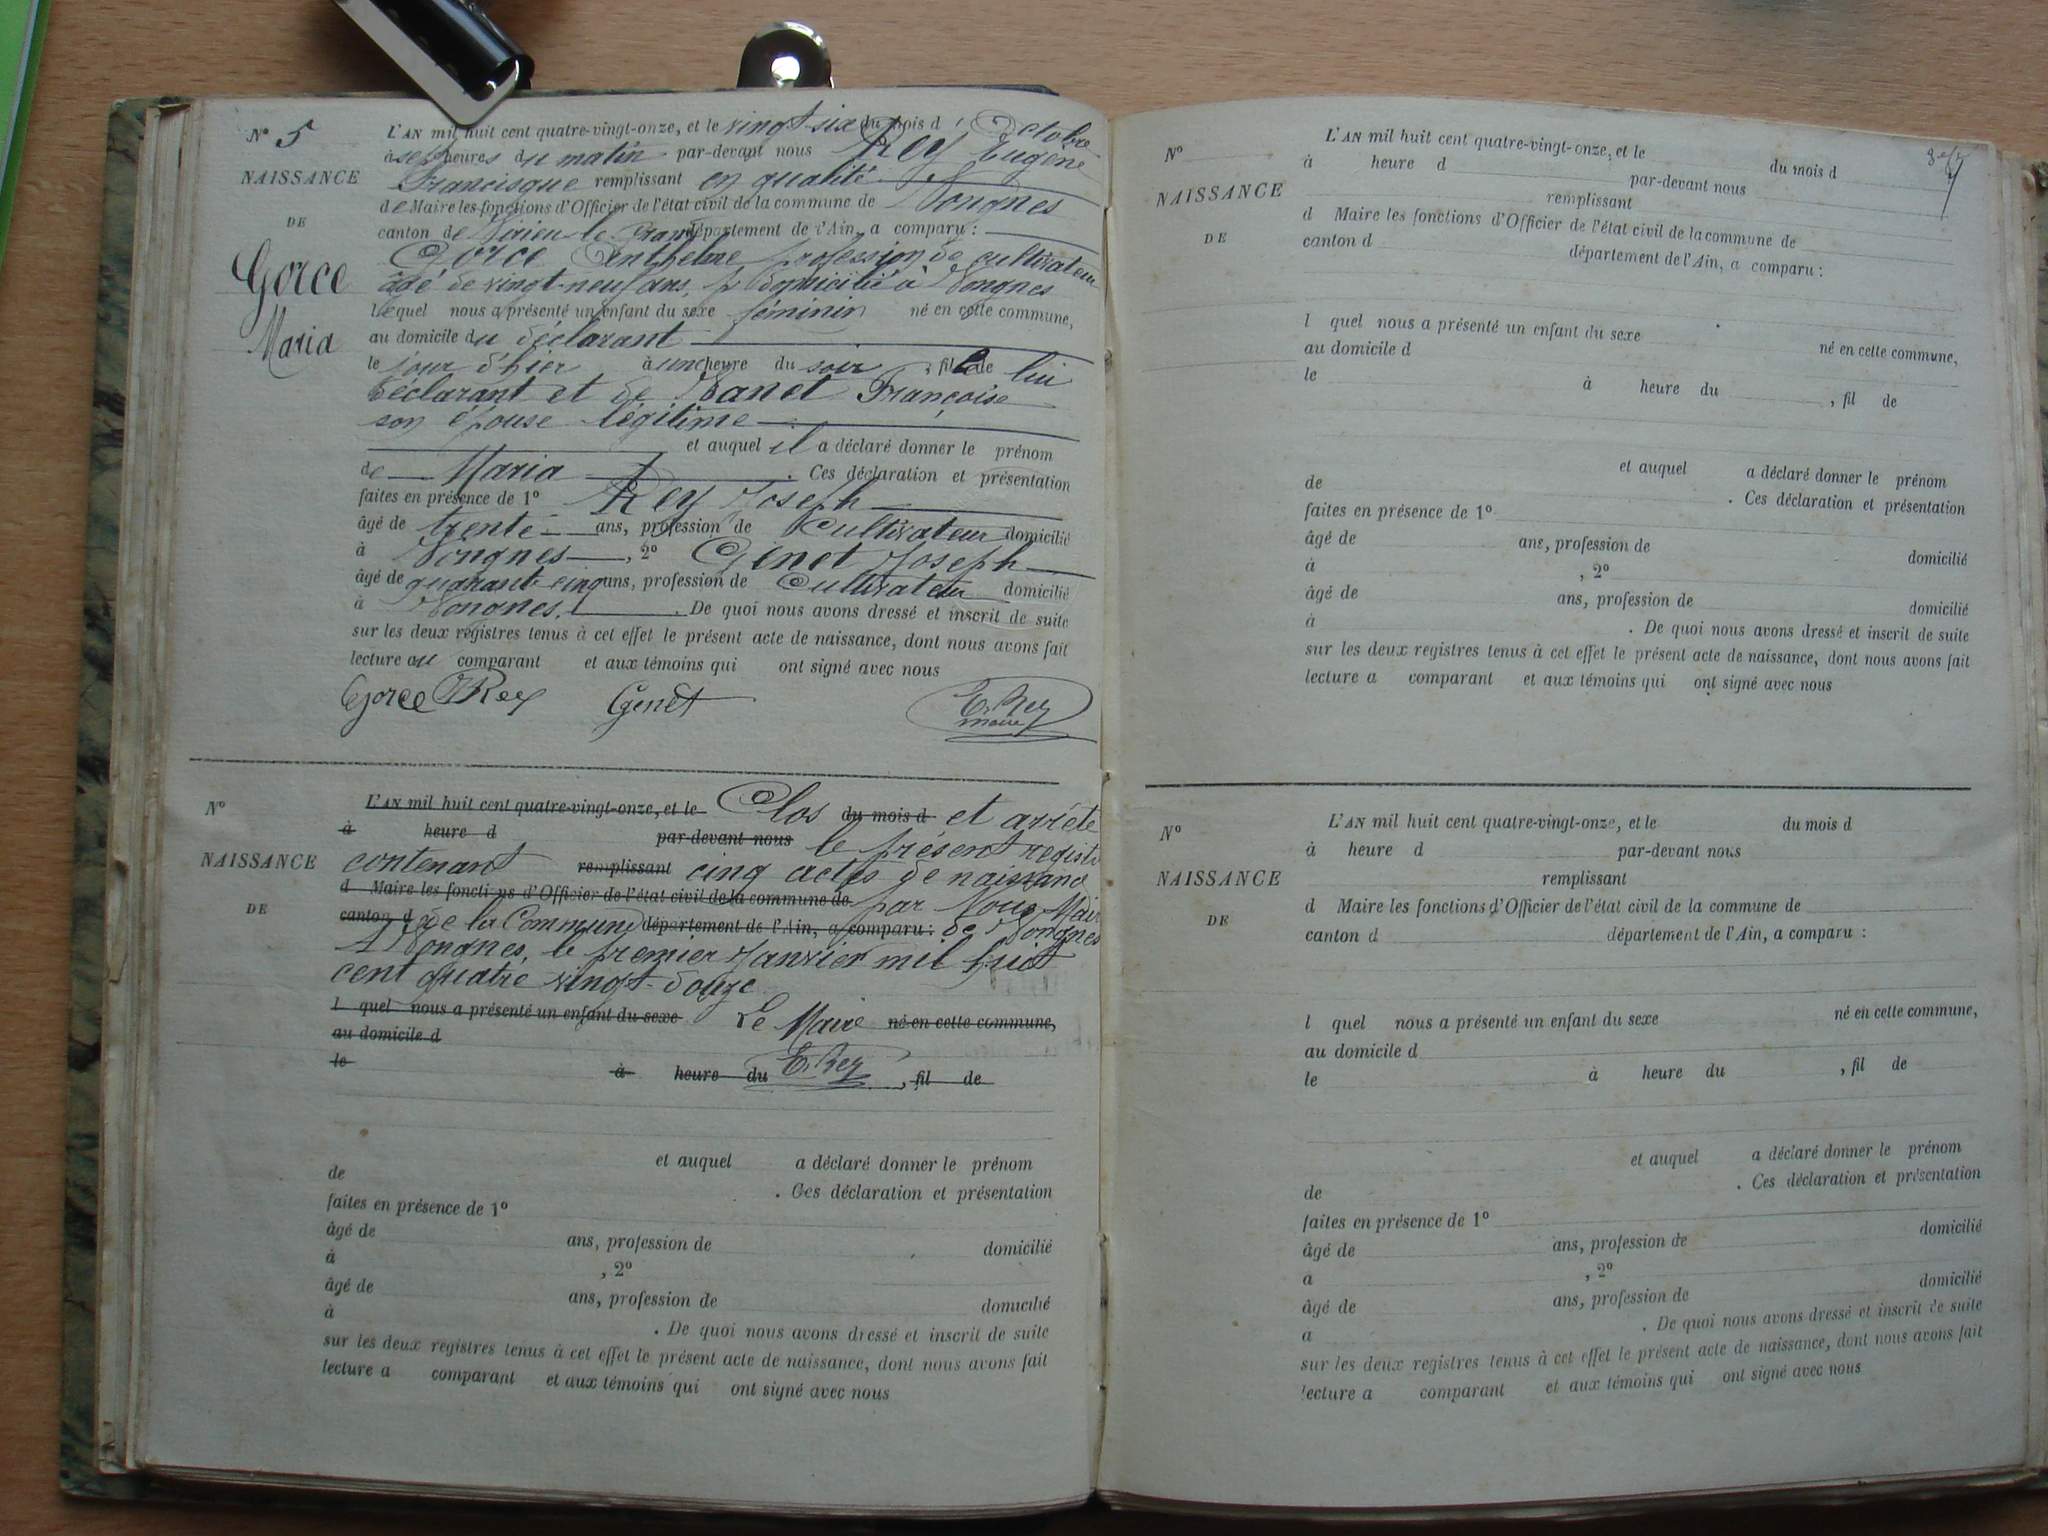 N° 5
NAISSANCE
DE
Gorce
Maria
L'AN mil huit cent quatre-vingt-onze, et le vingt-six du mois d'Octobre
à sept heures du matin par-devant nous Rey Eugène
Francisque remplissant en qualité
de Maire les fonctions d'Officier de l'état civil de la commune de Vongnes
canton de Virieu le Grand département de l'Ain, a comparu :
Gorce Anthelme profession de cultivateur
âgé de vingt-neuf ans, domicilié à Vongnes
lequel nous a présenté un enfant du sexe féminin né en cette commune,
au domicile du déclarant
le jour d'hier à une heure du soir, fille de lui
déclarant et de Françoise
son épouse légitime
et auquel il a déclaré donner le prénom
de Maria. Ces déclaration et présentation
faites en présence de 1° Rey Joseph
âgé de trente ans, profession de Cultivateur domicilié
à Vongnes, 2° Genet Joseph
âgé de quarante cinq ans, profession de Cultivateur domicilié
à Vongnes. De quoi nous avons dressé et inscrit de suite
sur les deux registres tenus à cet effet le présent acte de naissance, dont nous avons fait
lecture au comparant et aux témoins qui ont signé avec nous
Gorce J Rey Genet E. Rey
maire
N°
NAISSANCE
DE
L'AN mil huit cent quatre-vingt-onze, et le Clos du mois d et arrêté
à heure d par-devant nous le présent registre
contenant remplissant cinq actes de naissance
d Maire les fonctions d'Officier de l'état civil de la commune de par Nous Maire
canton d de la Commune département de l'Ain, a comparu : de Vongnes
A Vongnes, le premier Janvier mil huit
cent quatre vingt-douze
l quel nous a présenté un enfant du sexe Le Maire né en cette commune,
au domicile d
le à heure du E. Rey, fil de
et auquel a déclaré donner le prénom
de . Ces déclaration et présentation
faites en présence de 1°
âgé de ans, profession de domicilié
à , 2°
âgé de ans, profession de domicilié
à . De quoi nous avons dressé et inscrit de suite
sur les deux registres tenus à cet effet le présent acte de naissance, dont nous avons fait
lecture a comparant et aux témoins qui ont signé avec nous
N°
NAISSANCE
DE
L'AN mil huit cent quatre-vingt-onze, et le du mois d
à heure d par-devant nous
remplissant
d Maire les fonctions d'Officier de l'état civil de la commune de
canton d département de l'Ain, a comparu :
l quel nous a présenté un enfant du sexe né en cette commune,
au domicile d
le à heure du , fil de
et auquel a déclaré donner le prénom
de . Ces déclaration et présentation
faites en présence de 1°
âgé de ans, profession de domicilié
à , 2°
âgé de ans, profession de domicilié
à . De quoi nous avons dressé et inscrit de suite
sur les deux registres tenus à cet effet le présent acte de naissance, dont nous avons fait
lecture a comparant et aux témoins qui ont signé avec nous
N°
NAISSANCE
DE
L'AN mil huit cent quatre-vingt-onze, et le du mois d
à heure d par-devant nous
remplissant
d Maire les fonctions d'Officier de l'état civil de la commune de
canton d département de l'Ain, a comparu :
l quel nous a présenté un enfant du sexe né en cette commune,
au domicile d
le à heure du , fil de
et auquel a déclaré donner le prénom
de . Ces déclaration et présentation
faites en présence de 1°
âgé de ans, profession de domicilié
a , 2°
âgé de ans, profession de domicilié
a . De quoi nous avons dressé et inscrit de suite
sur les deux registres tenus à cet effet le présent acte de naissance, dont nous avons fait
lecture a comparant et aux témoins qui ont signé avec nous